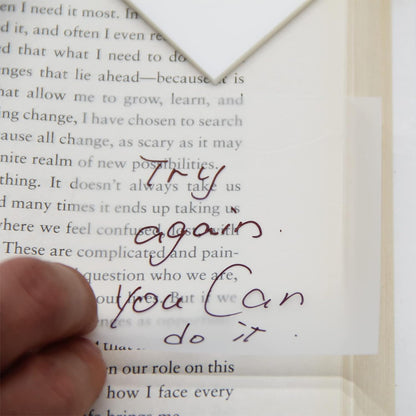 en I need it most. In
d it, and often I even re
ed that what I need to do
nges that lie ahead—because it is
hat allow me to grow, learn, and
ing change, I have chosen to search
ause all change, as scary as it may
nite realm of new possibilities.
thing. It doesn't always take us
d many times it ends up taking us
where we feel confused, lost, with
These are complicated and pain-
question who we are,
our lives. But if we
as
that
en our role on this
how I face every
me
Try
again.
you Can
do it.